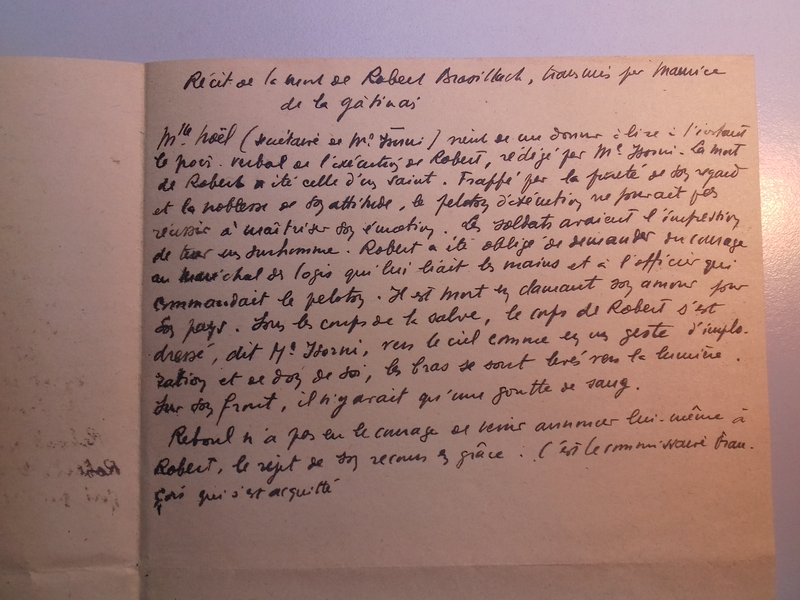 Récit de la mort de Robert Brasillach, transmis par Maurice
de la Gâtinais
Mlle Noël (secrétaire de Me Isorni) vient de me donner à lire à l'instant
le procès-verbal de l'exécution de Robert, rédigé par Me Isorni. La mort
de Robert a été celle d'un saint. Frappé par la pureté de son regard
et la noblesse de son attitude, le peloton d'exécution ne pouvait pas
réussir à maîtriser son émotion. Les soldats avaient l'impression
de tuer un surhomme. Robert a été obligé de demander du courage
au maréchal des logis qui lui liait les mains et à l'officier qui
commandait le peloton. Il est mort en clamant son amour pour
son pays. Sous les coups de la salve, le corps de Robert s'est
dressé, dit Me Isorni, vers le ciel comme en un geste d'implo-
ration et de don de soi, les bras se sont levés vers la lumière.
Sur son front, il n'y avait qu'une goutte de sang.
Reboul n'a pas eu le courage de venir annoncer lui-même à
Robert, le rejet de son recours en grâce. C'est le commissaire Fran-
çois qui s'est acquitté